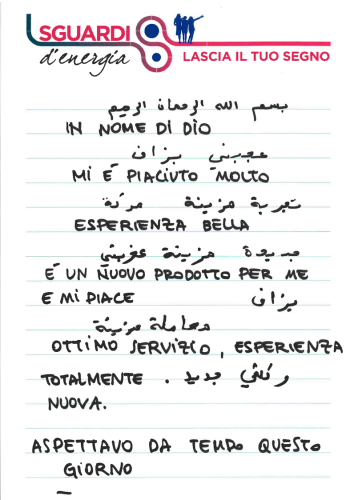 SGUARDI
d'energia
LASCIA IL TUO SEGNO
بسم الله الرحمان الرحيم
IN NOME DI DIO
عجبني بزاف
MI È PIACIUTO MOLTO
تجربة مزينة
ESPERIENZA BELLA
جديدة مزينة
È UN NUOVO PRODOTTO PER ME
E MI PIACE بزاف
معاملة مزينة
OTTIMO SERVIZIO, ESPERIENZA
TOTALMENTE . جديد
NUOVA.
ASPETTAVO DA TEMPO QUESTO
GIORNO